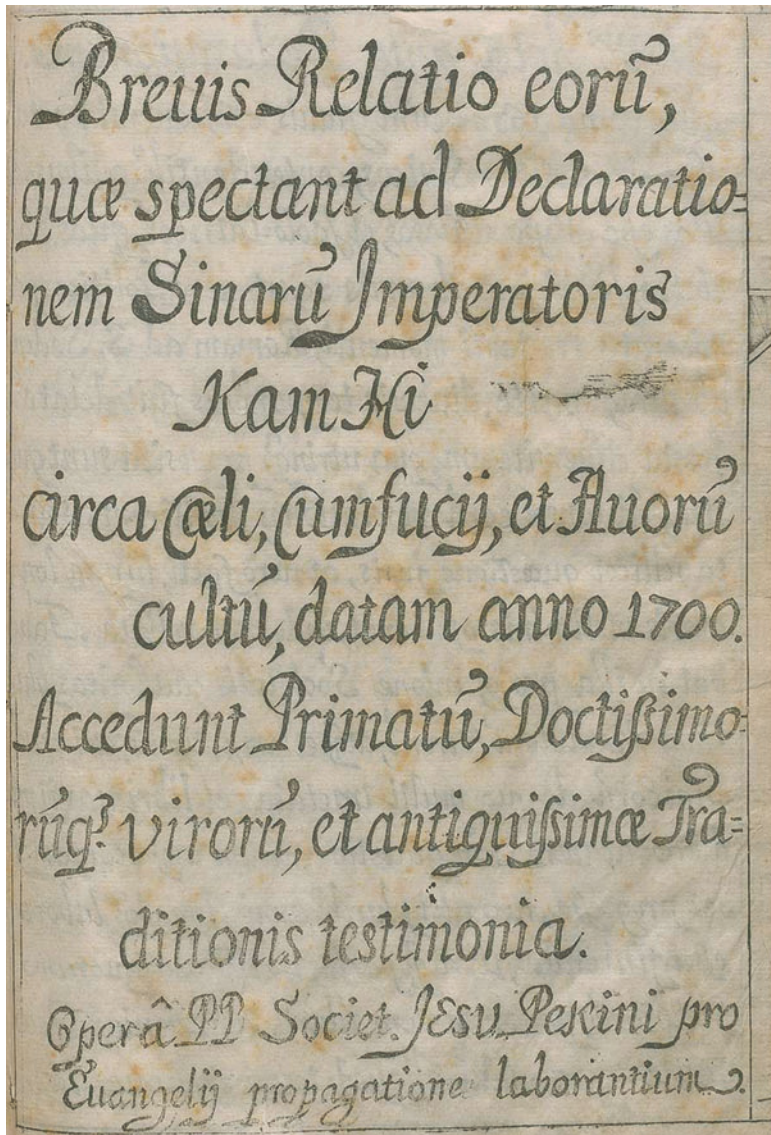 Breuis Relatio eorū,
quæ spectant ad Declaratio=
nem Sinarū Imperatoris
Kam Hi
circa Cœli, Cumfucij, et Auorū
cultū, datam anno 1700.
Accedunt Primatū, Doctißimo=
rūq; virorū, et antiquißimæ Tra=
ditionis testimonia.
Operâ PP Societ. JESU Pekini pro
Euangelij propagatione laborantium.